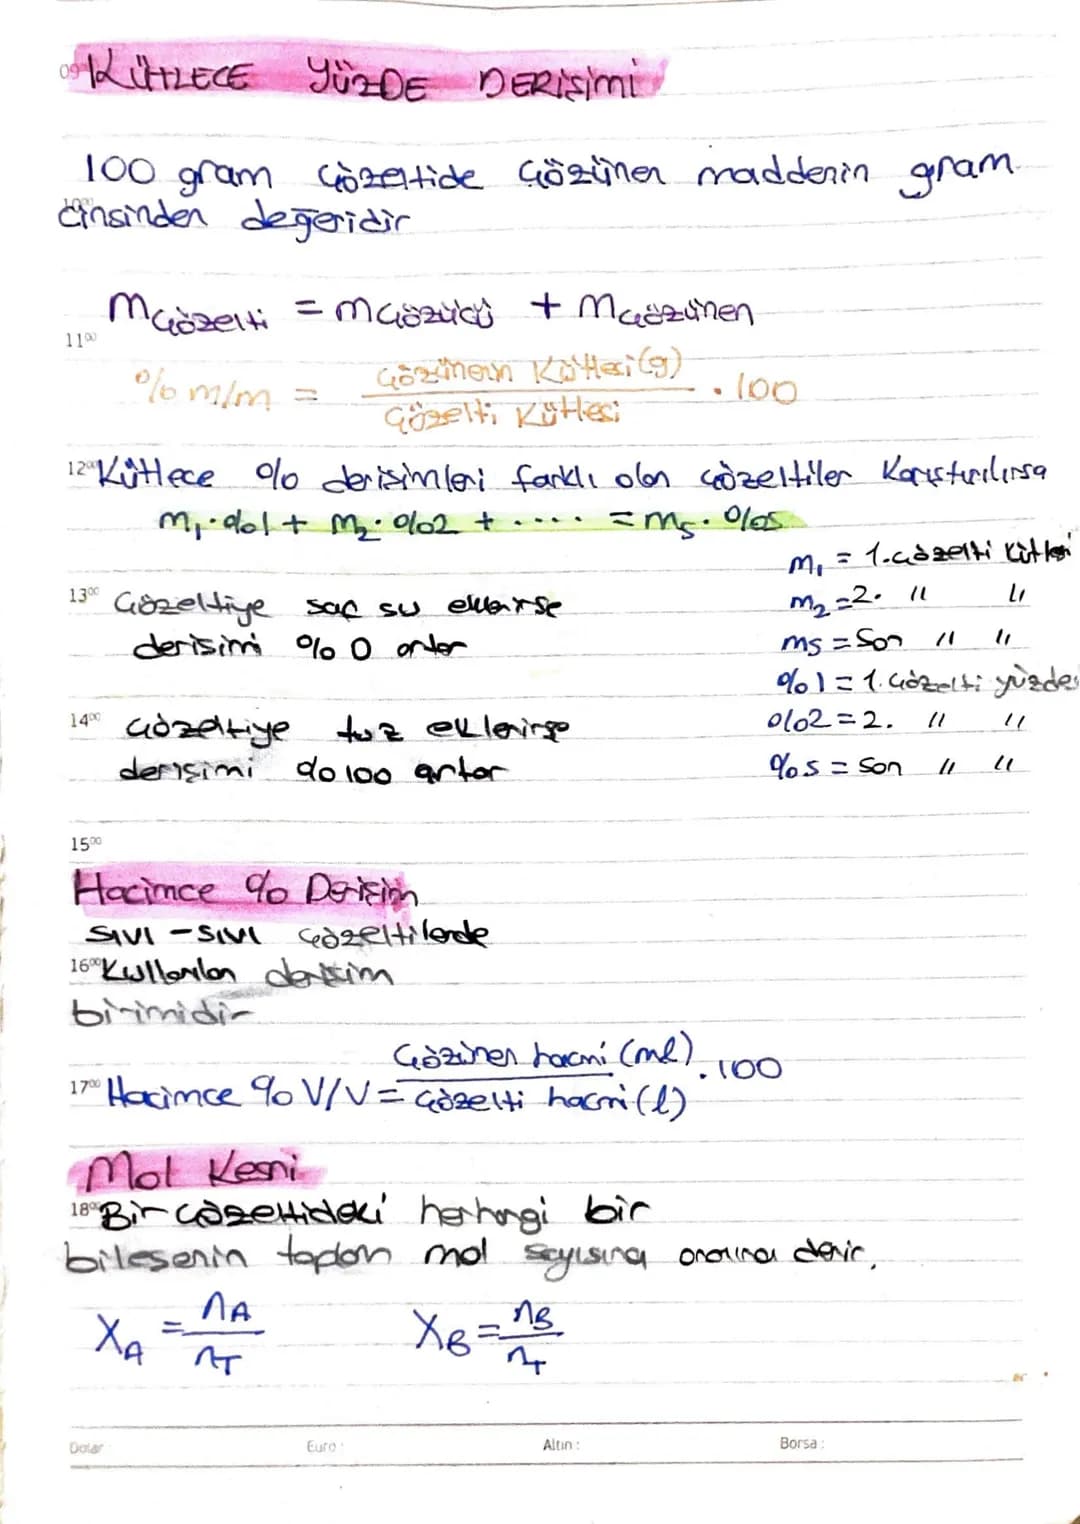 09 KÜTLECE YÜZDE DERİŞİMİ
100 gram çözeltide çözünen maddenin gram
10⁰⁰ cinsinden değeridir
mçözelti = mçözücü + mçözünen
11⁰⁰
% m/m = Çözünenin Kütlesi(g) / Çözelti Kütlesi . 100
12⁰⁰ Kütlece % derişimleri farklı olan çözeltiler Karıştırılırsa
m₁.%1 + m₂.%2 + .... = ms.%s
m₁ = 1.çözelti kütlesi
13⁰⁰ Çözeltiye saf su eklenirse m₂ = 2. " "
derişimi %0 alınır ms = Son " "
%1 = 1.çözelti yüzdesi
14⁰⁰ Çözeltiye tuz eklenirse %2 = 2. " "
derişimi %100 artar %s = Son " "
15⁰⁰
Hacimce % Derişim
SIVI - SIVI çözeltilerde
16⁰⁰ Kullanılan derişim
birimidir
17⁰⁰ Hacimce % V/V = Çözünen hacmi (ml) / Çözelti hacmi (l) . 100
Mol Kesri
18⁰⁰ Bir çözeltideki herhangi bir
bileşenin toplam mol sayısına oranına denir.
XA = nA / nT XB = nB / nT
Dolar Euro : Altın : Borsa :